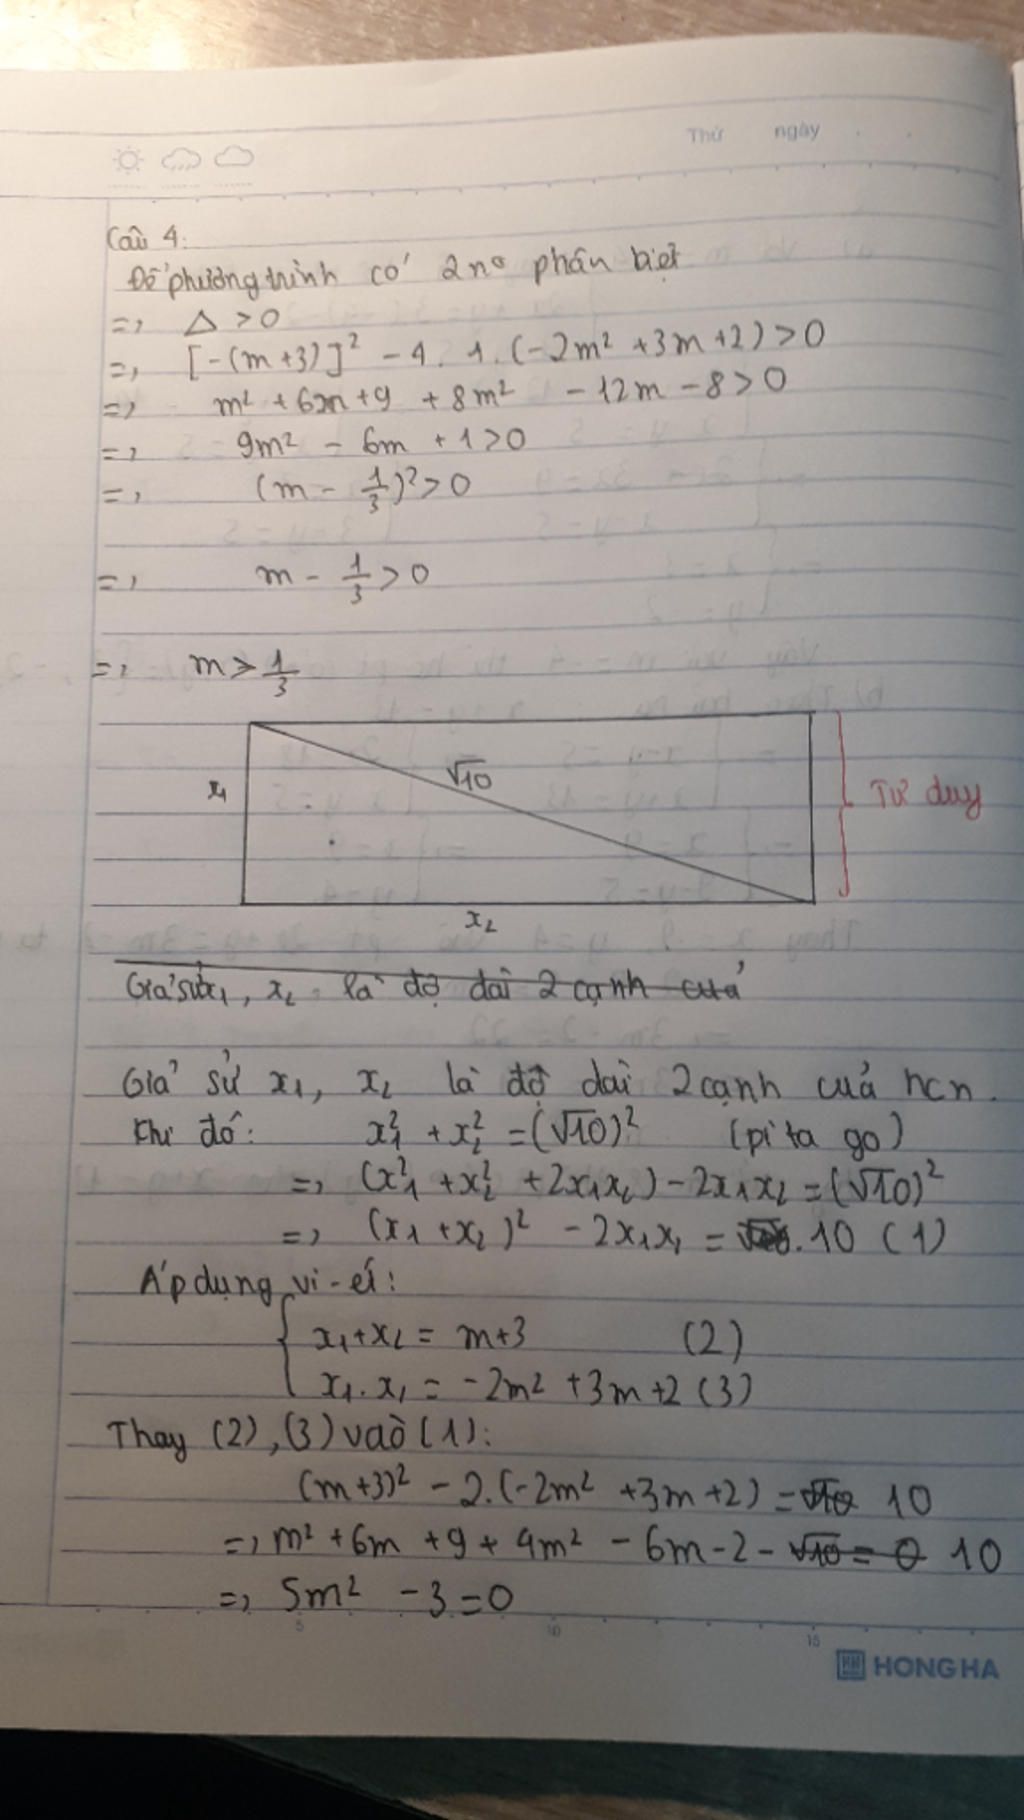 Thứ ngày
Câu 4:
Để phương trình có 2 n⁰ phân biệt
=> Δ > 0
=> [-(m+3)]² - 4. 1. (-2m² + 3m + 2) > 0
=> m² + 6m + 9 + 8m² - 12m - 8 > 0
=> 9m² - 6m + 1 > 0
=> (m - 1/3)² > 0
=> m - 1/3 > 0
=> m > 1/3
x₁
√10
Tư duy
x₂
Giả sử x₁, x₂ là độ dài 2 cạnh của
Giả sử x₁, x₂ là độ dài 2 cạnh của hcn.
Khi đó: x₁² + x₂² = (√10)² (pi ta go)
=> (x₁² + x₂² + 2x₁x₂) - 2x₁x₂ = (√10)²
=> (x₁ + x₂)² - 2x₁x₁ = 10 (1)
Áp dụng vi-ét:
x₁ + x₂ = m+3 (2)
x₁. x₁ = -2m² + 3m + 2 (3)
Thay (2), (3) vào (1):
(m+3)² - 2.(-2m² + 3m + 2) = √10 10
=> m² + 6m + 9 + 4m² - 6m - 2 - √10 = 0 10
=> 5m² - 3 = 0
5 10 15
HONG HA